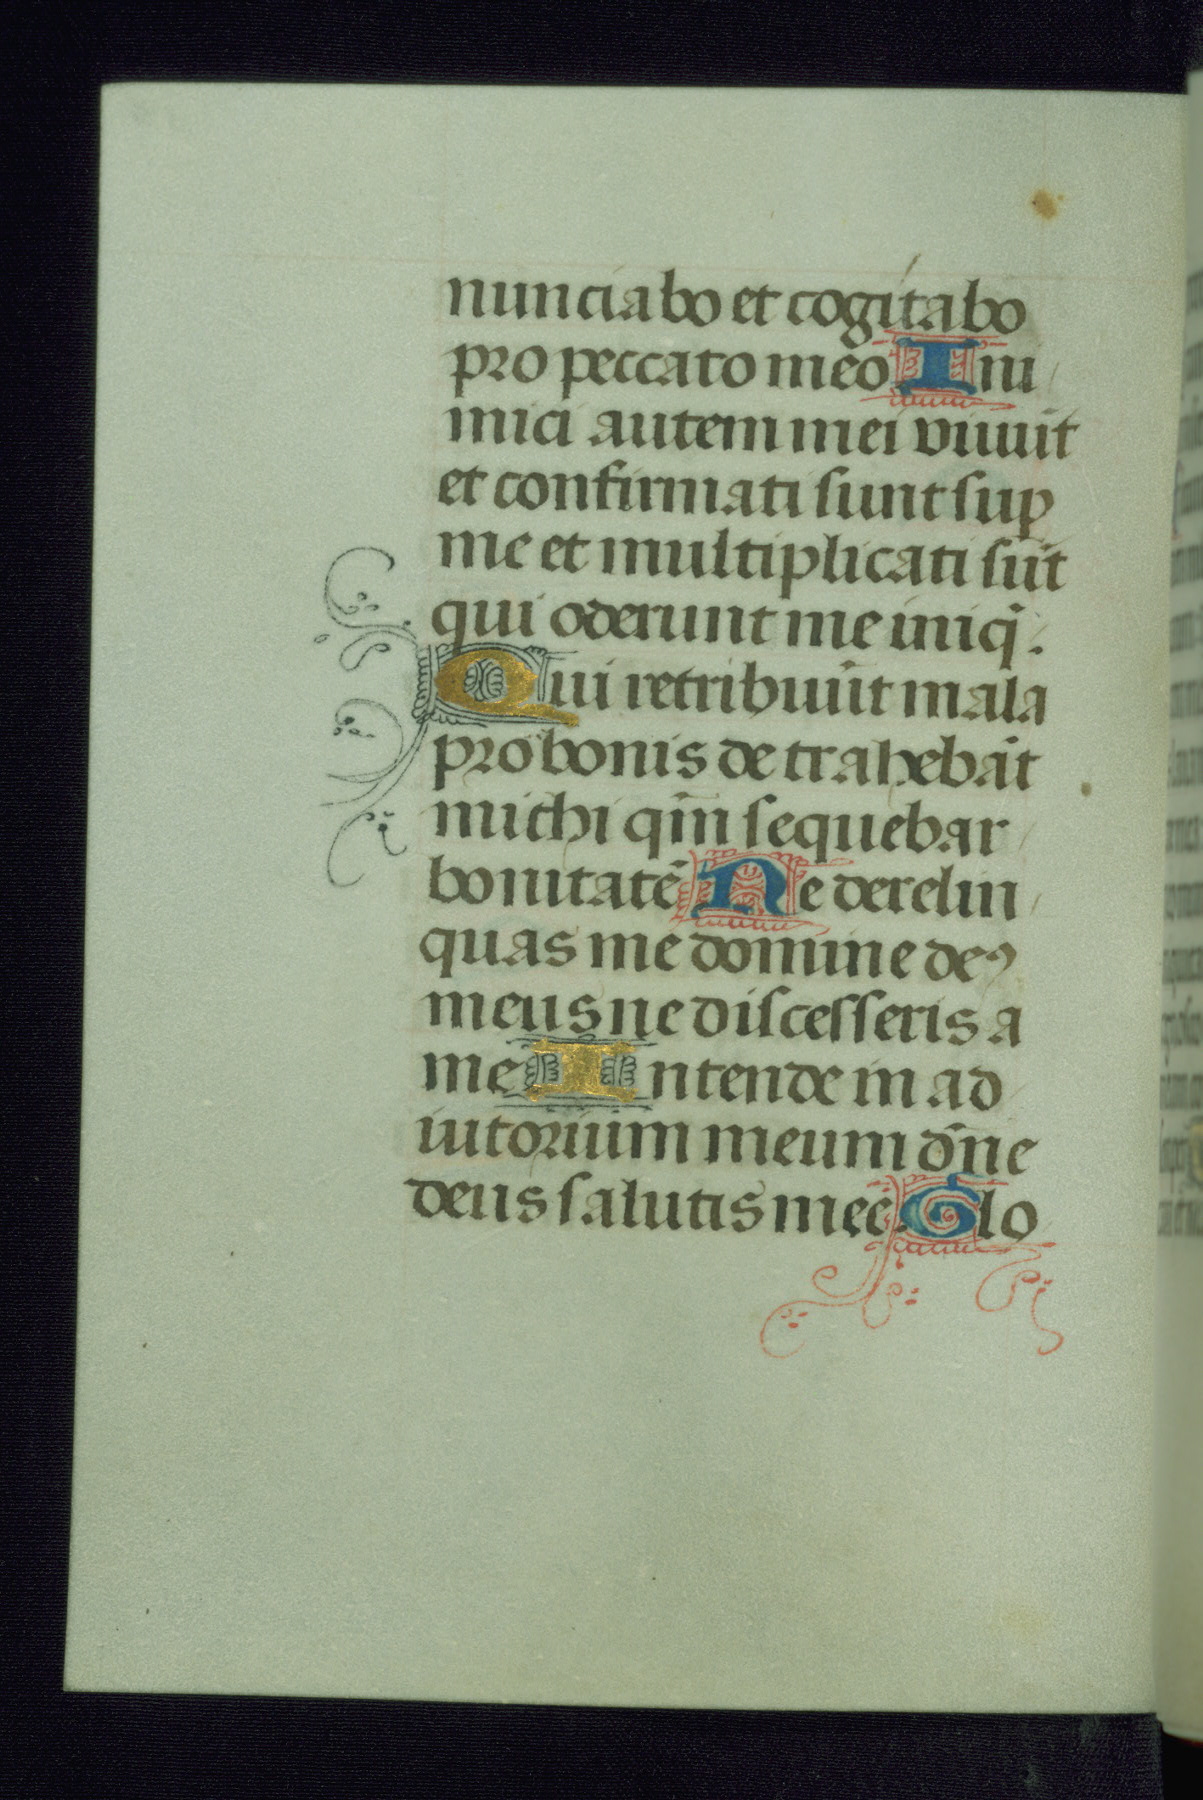 nunciabo et cogitabo
pro peccato meo Ini
mici autem mei viuūt
et confirmati sunt suꝑ
me et multiplicati sūt
qui oderunt me iniq̄.
Qui retribuūt mala
pro bonis detrahebāt
michi qm̄ sequebar
bonitatē Ne derelin
quas me domine deꝰ
meus ne discesseris a
me Intende in ad
iutorium meum dn̄e
deus salutis mee. Glo